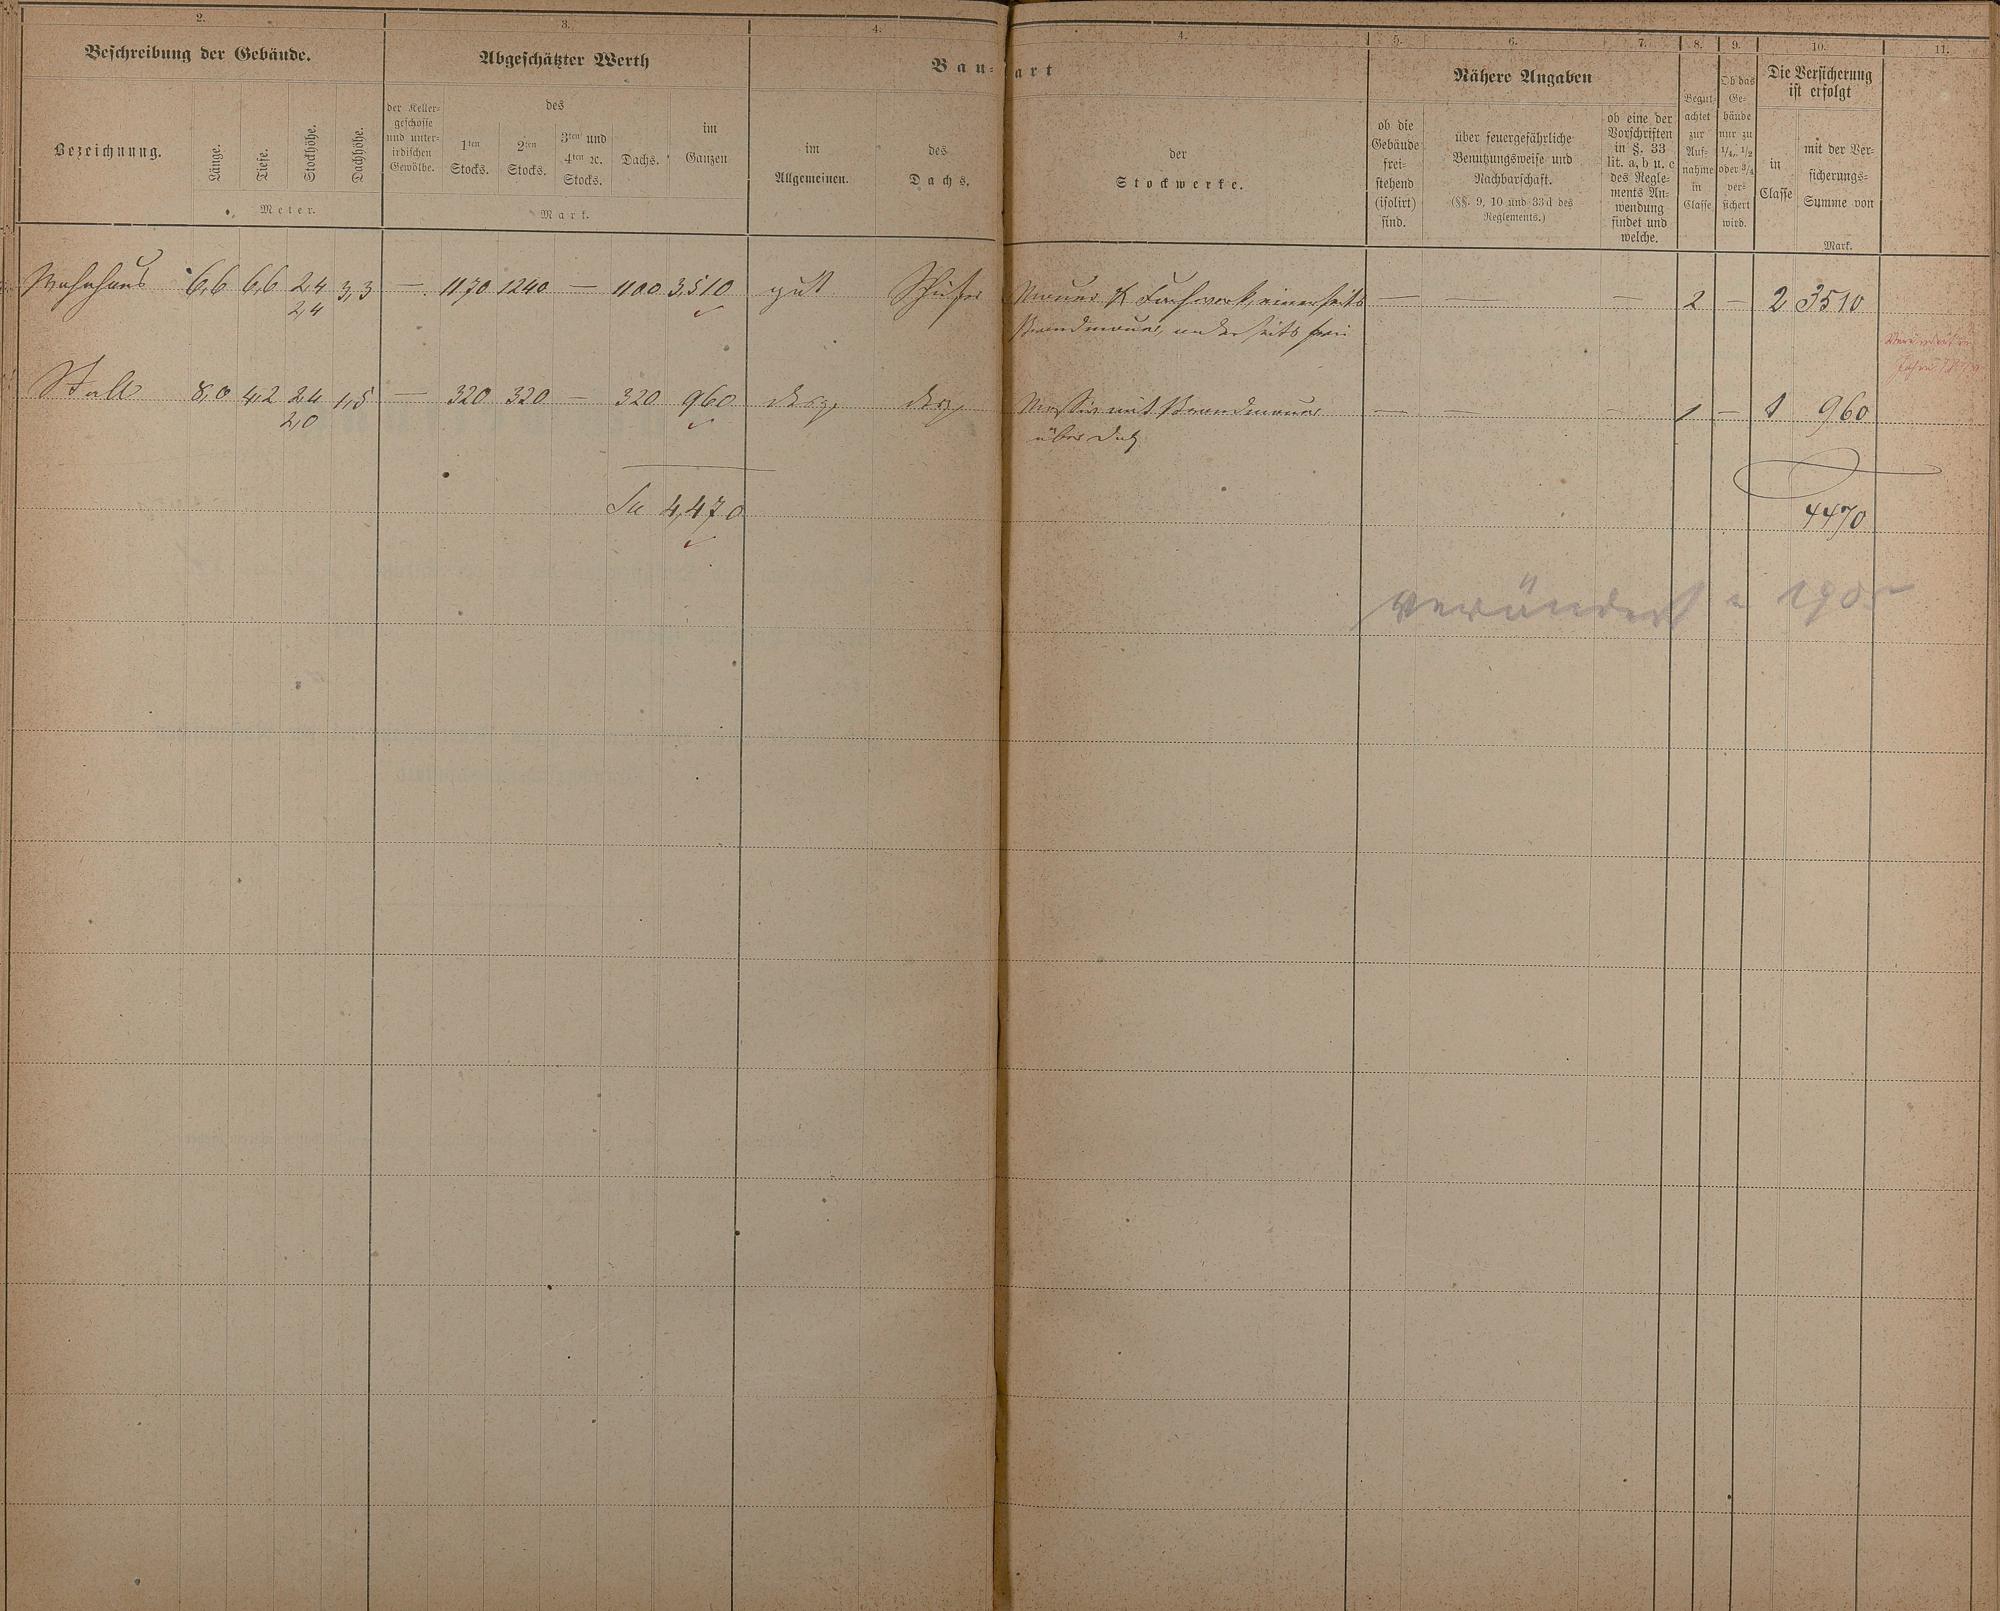 2.
3.
4.
4.
5.
6.
7.
8.
9.
10.
11.
Beschreibung der Gebäude.
Abgeschätzter Werth
Bau-
art
Nähere Angaben
Die Versicherung
ist erfolgt
Bezeichnung.
Länge.
Tiefe.
Stockhöhe.
Dachhöhe.
Meter.
der Keller-
geschosse
und unter-
irdischen
Gewölbe.
des
1ten
Stocks.
2ten
Stocks.
3ten und
4ten ꝛc.
Stocks.
Dachs.
im
Ganzen
Mark.
im
Allgemeinen.
des
Dachs.
der
Stockwerke.
ob die
Gebäude
frei-
stehend
(isolirt)
sind.
über feuergefährliche
Benutzungsweise und
Nachbarschaft.
(§§. 9, 10 und 33d des
Reglements.)
ob eine der
Vorschriften
in §. 33
lit. a, b u. c
des Regle-
ments An-
wendung
findet und
welche.
Begut-
achtet
zur
Auf-
nahme
in
Classe
Ob das
Ge-
bäude
nur zu
1/4, 1/2
oder 3/4
ver-
sichert
wird.
in
Classe
mit der Ver-
sicherungs-
Summe von
Mark.
Wohnhaus 6,6 6,6 2,4 3,3 — 1170 1240 — 1100 3,510 gut Schiefer Mauer & Fachwerk, einerseits — — — 2 — 2 3510
2,4 Brandmauer, anderseits frei
Stall 8,0 4,2 2,4 1,5 — 320 320 — 320 960 desgl. desgl. Massiv mit Brandmauer — — — 1 — 1 960
2,0 über Dach
Sa 4,470
4470
verändert 1905